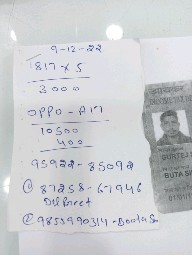 9-12-22
1817 x 5
3000
OPPO - A17
10500
400
95922-85092
① 87258-67946
Dil Preet
② 9855990314-Boota S
GURTEJ
BUTA S